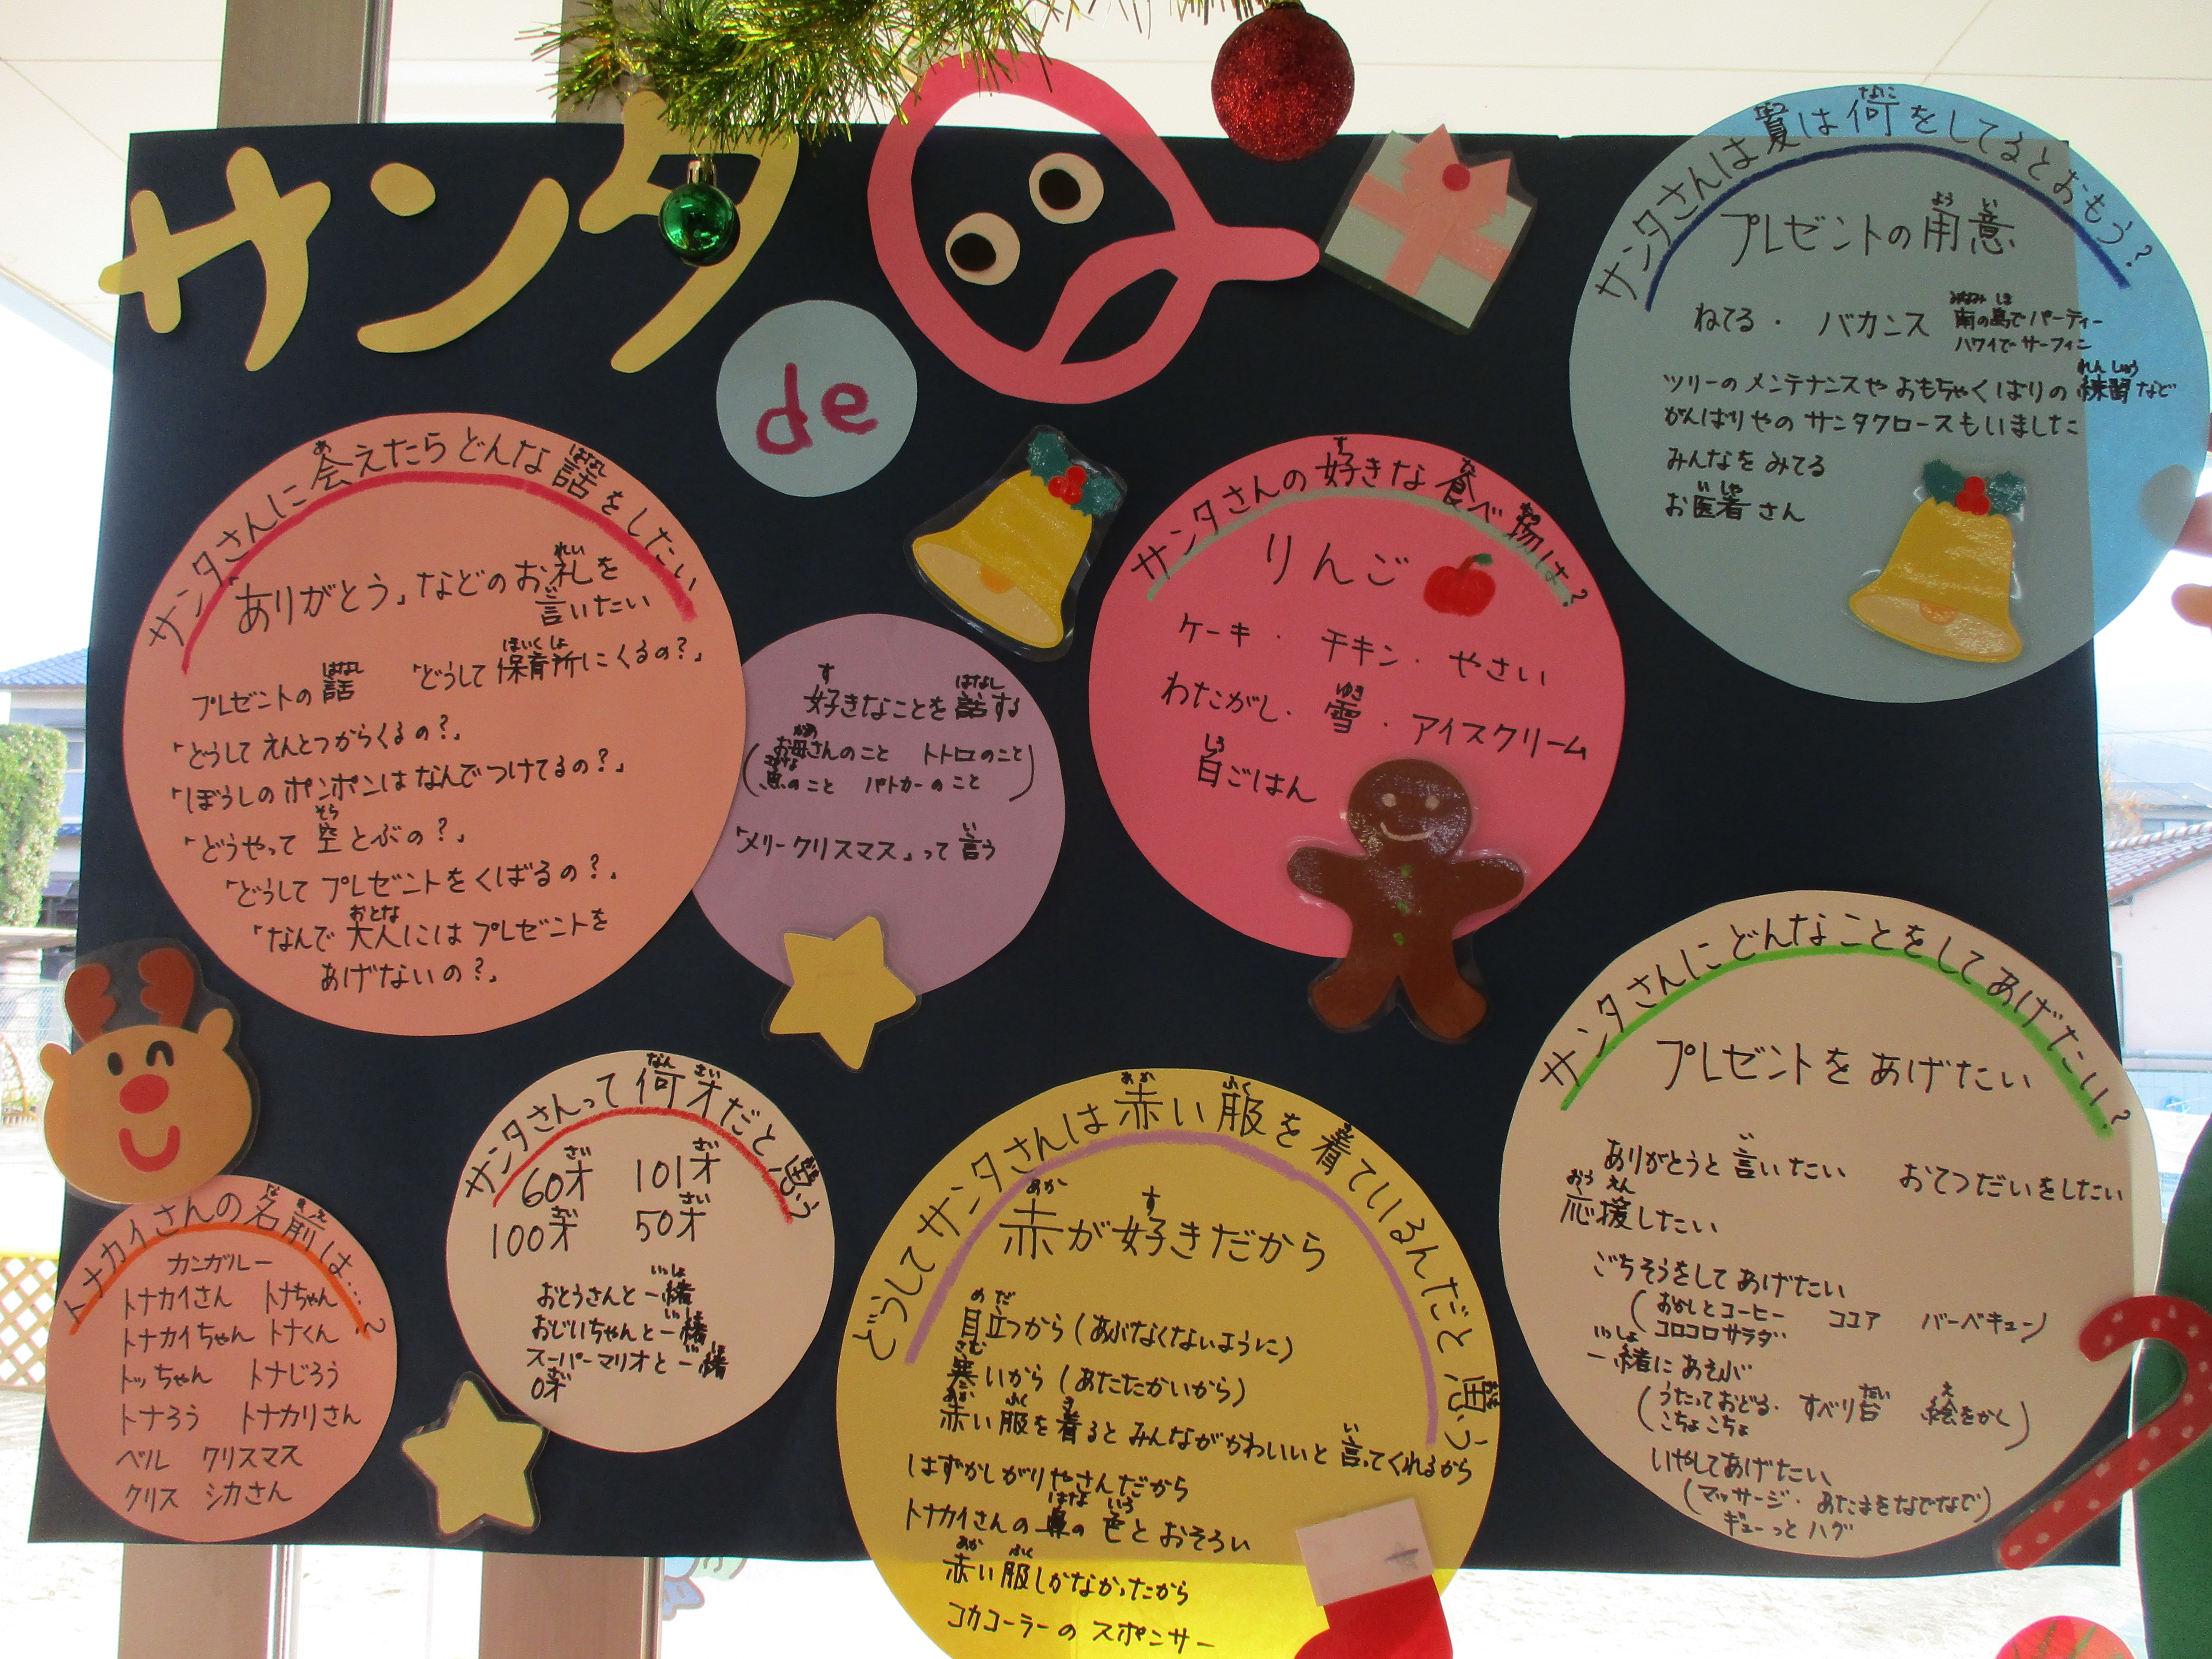 サンタ
de
Q
サンタさんは夏は何をしてるとおもう?
プレゼントの用意
ねてる・バカンス 南の島でパーティー
ハワイでサーフィン
ツリーのメンテナンスやおもちゃくばりの練習など
がんばりやのサンタクロースもいました
みんなをみてる
お医者さん
サンタさんに会えたらどんな話をしたい
「ありがとう」などのお礼を
言いたい
プレゼントの話 「どうして保育所にくるの?」
「どうしてえんとつからくるの?」
「ぼうしのポンポンはなんでつけてるの?」
「どうやって空とぶの?」
「どうしてプレゼントをくばるの?」
「なんで大人にはプレゼントを
あげないの?」
好きなことを話する
(お母さんのこと トトロのこと
魚のこと パトカーのこと)
「メリークリスマス」って言う
サンタさんの好きな食べ物は?
りんご
ケーキ・チキン・やさい
わたがし・雪・アイスクリーム
白ごはん
トナカイさんの名前は…?
カンガルー
トナカイさん トナちゃん
トナカイちゃん トナくん
トッちゃん トナじろう
トナろう トナカリさん
ベル クリスマス
クリス シカさん
サンタさんって何才だと思う
60才 101才
100才 50才
おとうさんと一緒
おじいちゃんと一緒
スーパーマリオと一緒
0才
どうしてサンタさんは赤い服を着ているんだと思う
赤が好きだから
目立つから(あぶなくないように)
寒いから(あたたかいから)
赤い服を着るとみんながかわいいと言ってくれるから
はずかしがりやさんだから
トナカイさんの鼻の色とおそろい
赤い服しかなかったから
コカコーラーのスポンサー
サンタさんにどんなことをしてあげたい?
プレゼントをあげたい
ありがとうと言いたい おてつだいをしたい
応援したい
ごちそうをしてあげたい
(おかしとコーヒー ココア バーベキュー)
コロコロサラダ
一緒にあそぶ
(うたっておどる・すべり台 絵をかく)
こちょこちょ
いやしてあげたい
(マッサージ・あたまをなでなで)
ギューっとハグ